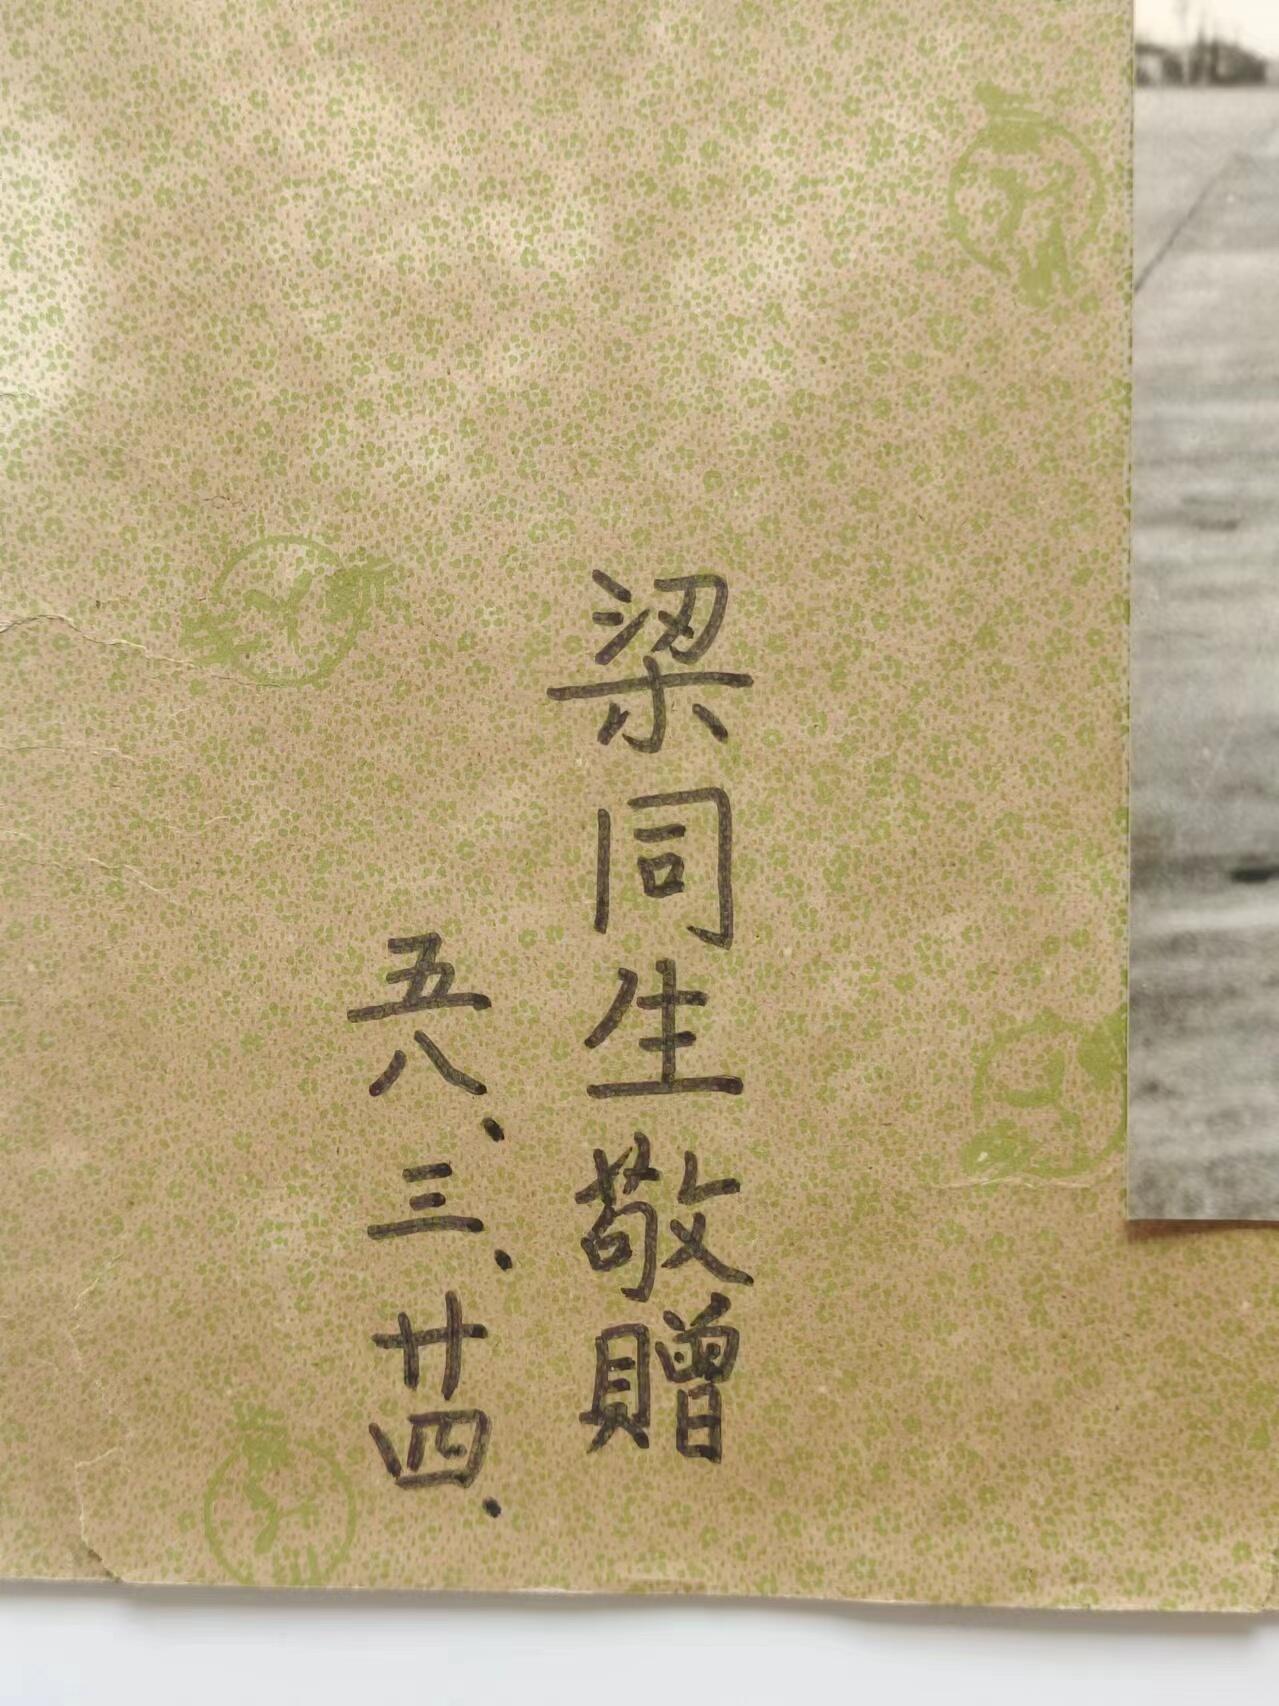 梁同生敬贈
五八、三、廿四、